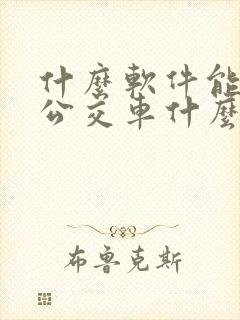 什麼軟件能
公交車什麼
布魯克斯